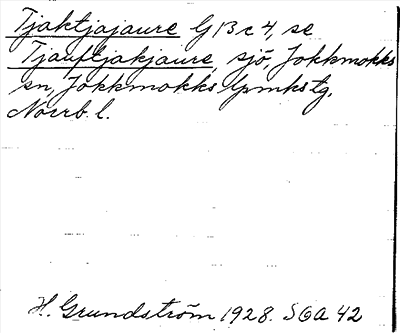 Tjaktjajaure G 13 c 4, se
Tjauftjakjaure, sjö, Jokkmokks
sn, Jokkmokks lpmkstg,
Norrb. l.
H. Grundström 1928. SOA 42